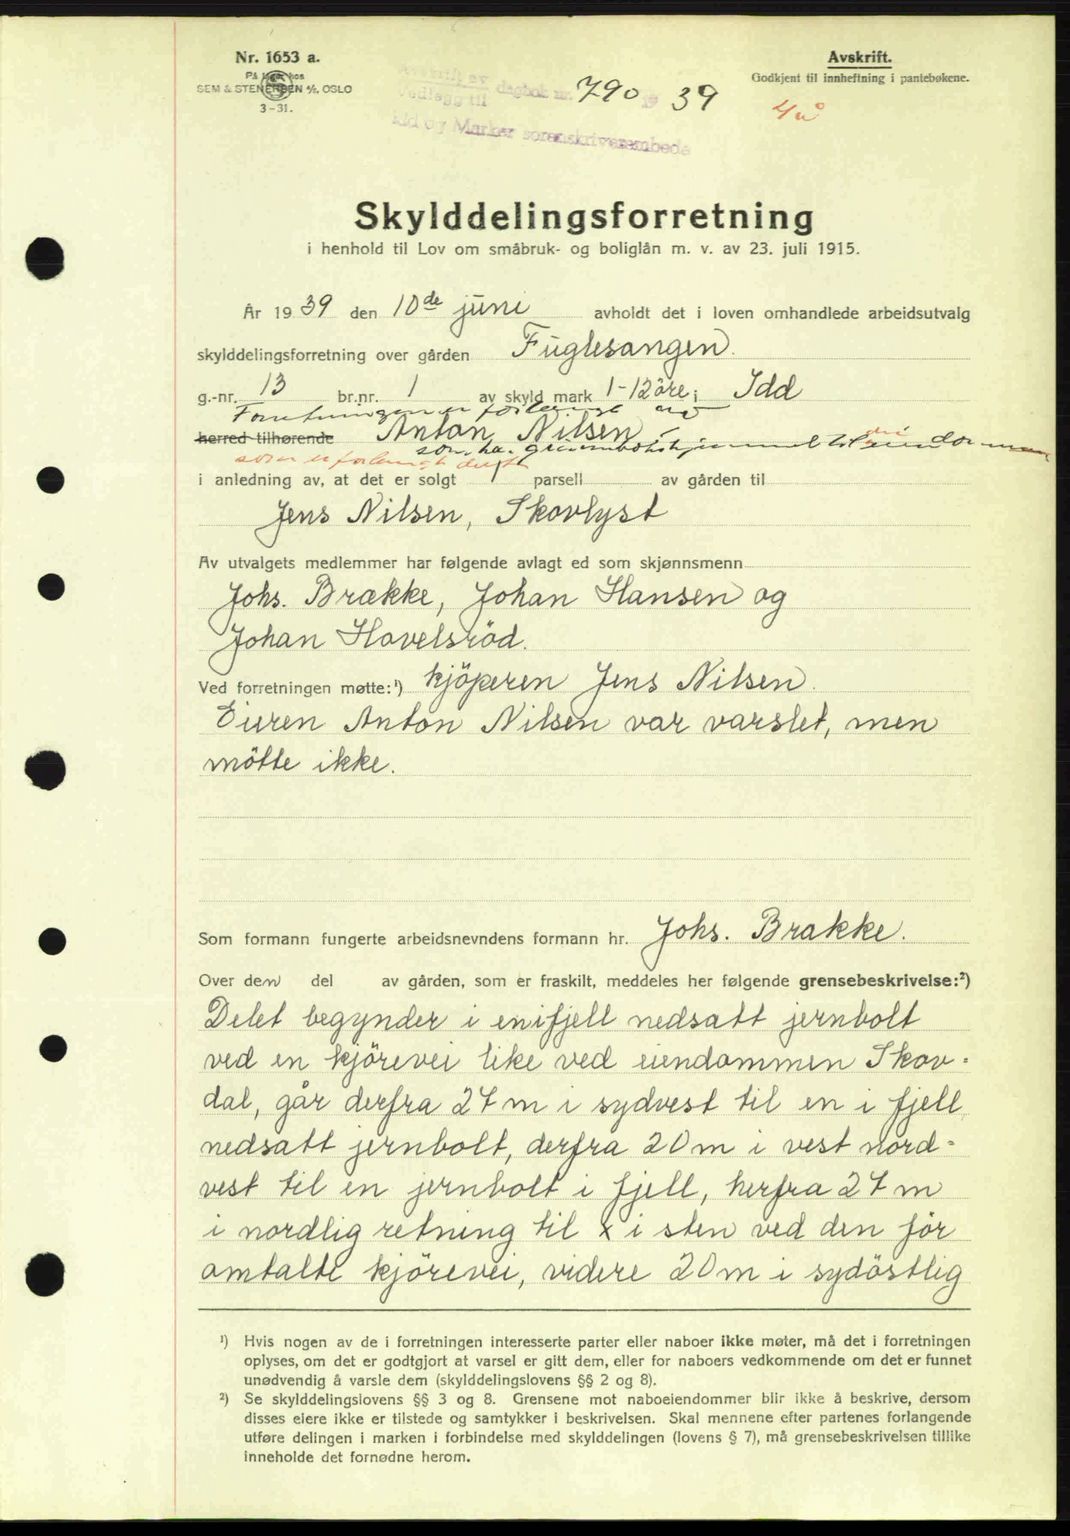 Nr. 1653 a.
På lager hos
SEM & STENERSEN A/S, OSLO
3-31.
Avskrift av dagbok nr. 790 19 39
Vedlegg til
Idd og Marker sorenskriverembede
Avskrift.
Godkjent til innheftning i pantebøkene.
Skylddelingsforretning
i henhold til Lov om småbruk- og boliglån m. v. av 23. juli 1915.
År 1939 den 10de juni avholdt det i loven omhandlede arbeidsutvalg
skylddelingsforretning over gården Fuglesangen.
g.-nr. 13 br.nr. 1 av skyld mark 1-12 öre i Idd
Forretningen er forlangt av
herred tilhørende Anton Nilsen,
som har grunnbokshjemmel til eiendommen
som er forlangt delt
i anledning av, at det er solgt 1 parsell av gården til
Jens Nilsen, Skovlyst
Av utvalgets medlemmer har følgende avlagt ed som skjønnsmenn
Johs. Brække, Johan Hansen og
Johan Hovelsröd.
Ved forretningen møtte:¹) kjöperen Jens Nilsen.
Eieren Anton Nilsen var varslet, men
mötte ikke.
Som formann fungerte arbeidsnevndens formann hr. Johs. Brække.
Over den del av gården, som er fraskilt, meddeles her følgende grensebeskrivelse:²)
Delet begynder i en i fjell nedsatt jernbolt
ved en kjörevei like ved eiendommen Skov-
dal, går derfra 27 m i sydvest til en i fjell
nedsatt jernbolt, derfra 20 m i vest nord-
vest til en jernbolt i fjell, herfra 27 m
i nordlig retning til x i sten ved den för
omtalte kjörevei, videre 20 m i sydöstlig
¹) Hvis nogen av de i forretningen interesserte parter eller naboer ikke møter, må det i forretningen
oplyses, om det er godtgjort at varsel er gitt dem, eller for naboers vedkommende om det er funnet
unødvendig å varsle dem (skylddelingslovens §§ 2 og 8).
²) Se skylddelingslovens §§ 3 og 8. Grensene mot naboeiendommer blir ikke å beskrive, dersom
disses eiere ikke er tilstede og samtykker i beskrivelsen. Skal mennene efter partenes forlangende
utføre delingen i marken i forbindelse med skylddelingen (lovens § 7), må grensebeskrivelsen tillike
inneholde det fornødne herom.